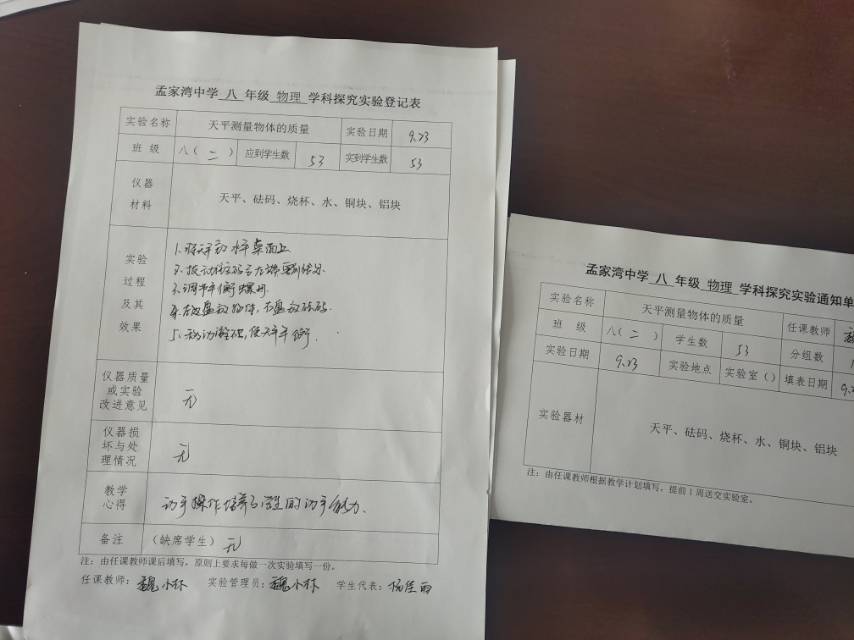 孟家湾中学 八 年级 物理 学科探究实验登记表
实验名称 天平测量物体的质量 实验日期 9.23
班 级 八（二） 应到学生数 53 实到学生数 53
仪器
材料
天平、砝码、烧杯、水、铜块、铝块
实验
过程
及其
效果
1.将天平放水平桌面上
2.拨动游码至左端零刻线处.
3.调节平衡螺母.
4.左盘放物体，右盘放砝码.
5.移动游码，使天平平衡.
仪器质量
或实验
改进意见
无
仪器损
坏与处
理情况
无
教学
心得
动手操作培养了学生的动手能力.
备注 （缺席学生） 无
注：由任课教师课后填写，原则上要求每做一次实验填写一份。
任课教师：魏小林 实验管理员：魏小林 学生代表：杨佳雨
孟家湾中学 八 年级 物理 学科探究实验通知单
实验名称 天平测量物体的质量 任课教师
班 级 八（二） 学生数 53 分组数
实验日期 9.23 实验地点 实验室（） 填表日期 9.
实验器材 天平、砝码、烧杯、水、铜块、铝块
注：由任课教师根据教学计划填写，提前1周送交实验室。